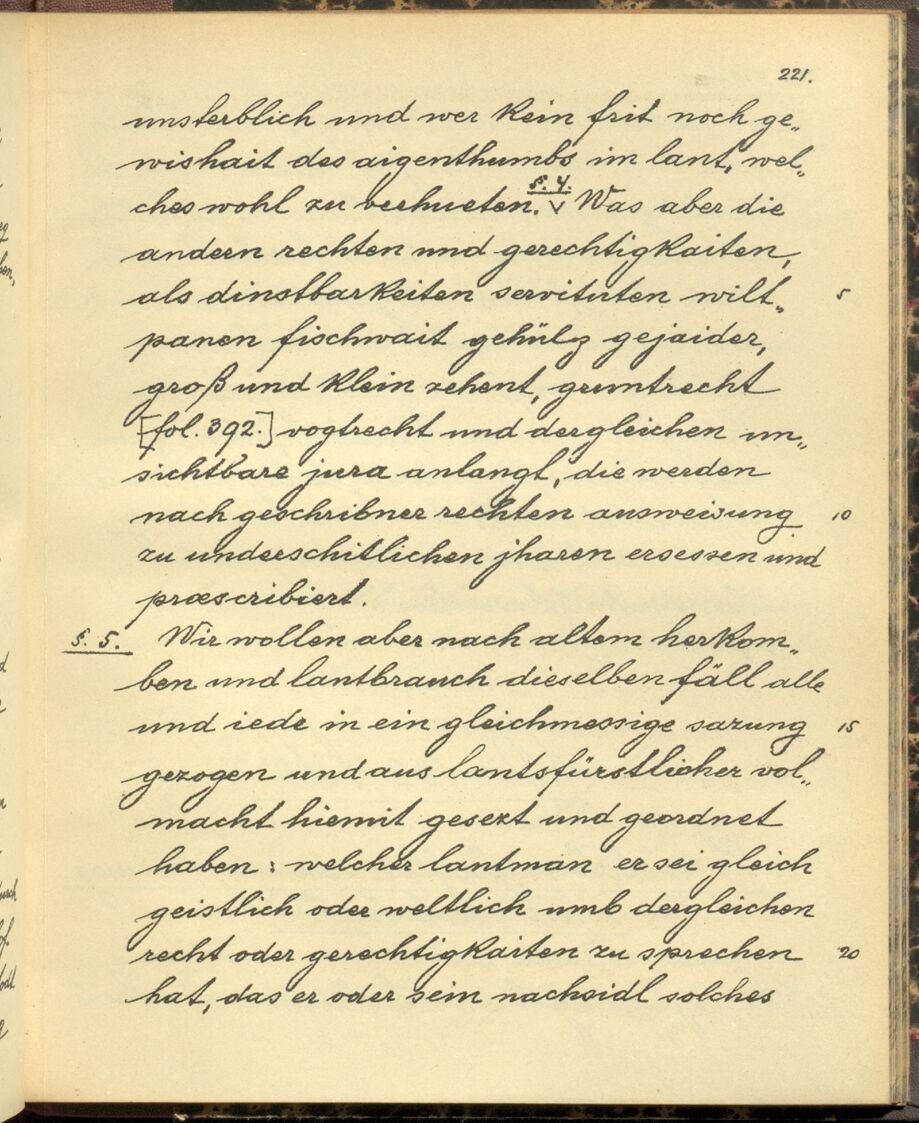 221.
unsterblich und wer kein frit noch ge„
wishait des aigenthumbs im lant, wel„
ches wohl zu verhueten. §. 4. Was aber die
andern rechten und gerechtigkaiten,
als dinstbarkeiten servituten wilt„ 5
panen fischwait gehülz gejaider,
groß und klein zehent, gruntrecht
[fol. 392.] vogtrecht und dergleichen un„
sichtbare jura anlangt, die werden
nach geschribner rechten ausweisung 10
zu underschitlichen jharen ersessen und
præscribiert.
§. 5. Wir wollen aber nach altem herkom„
ben und lantbrauch dieselben fäll alle
und iede in ein gleichmessige sazung 15
gezogen und aus lantsfürstlicher vol„
macht hiemit gesezt und geordnet
haben: welcher lantman er sei gleich
geistlich oder weltlich umb dergleichen
recht oder gerechtigkaiten zu sprechen 20
hat, das er oder sein nachsidl solches